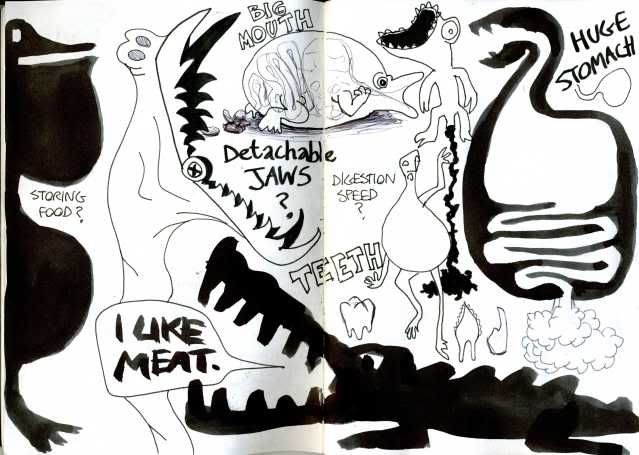 BIG
MOUTH
HUGE
STOMACH
Detachable
JAWS
?
DIGESTION
SPEED
?
STORING
FOOD?
TEETH
I LIKE
MEAT.